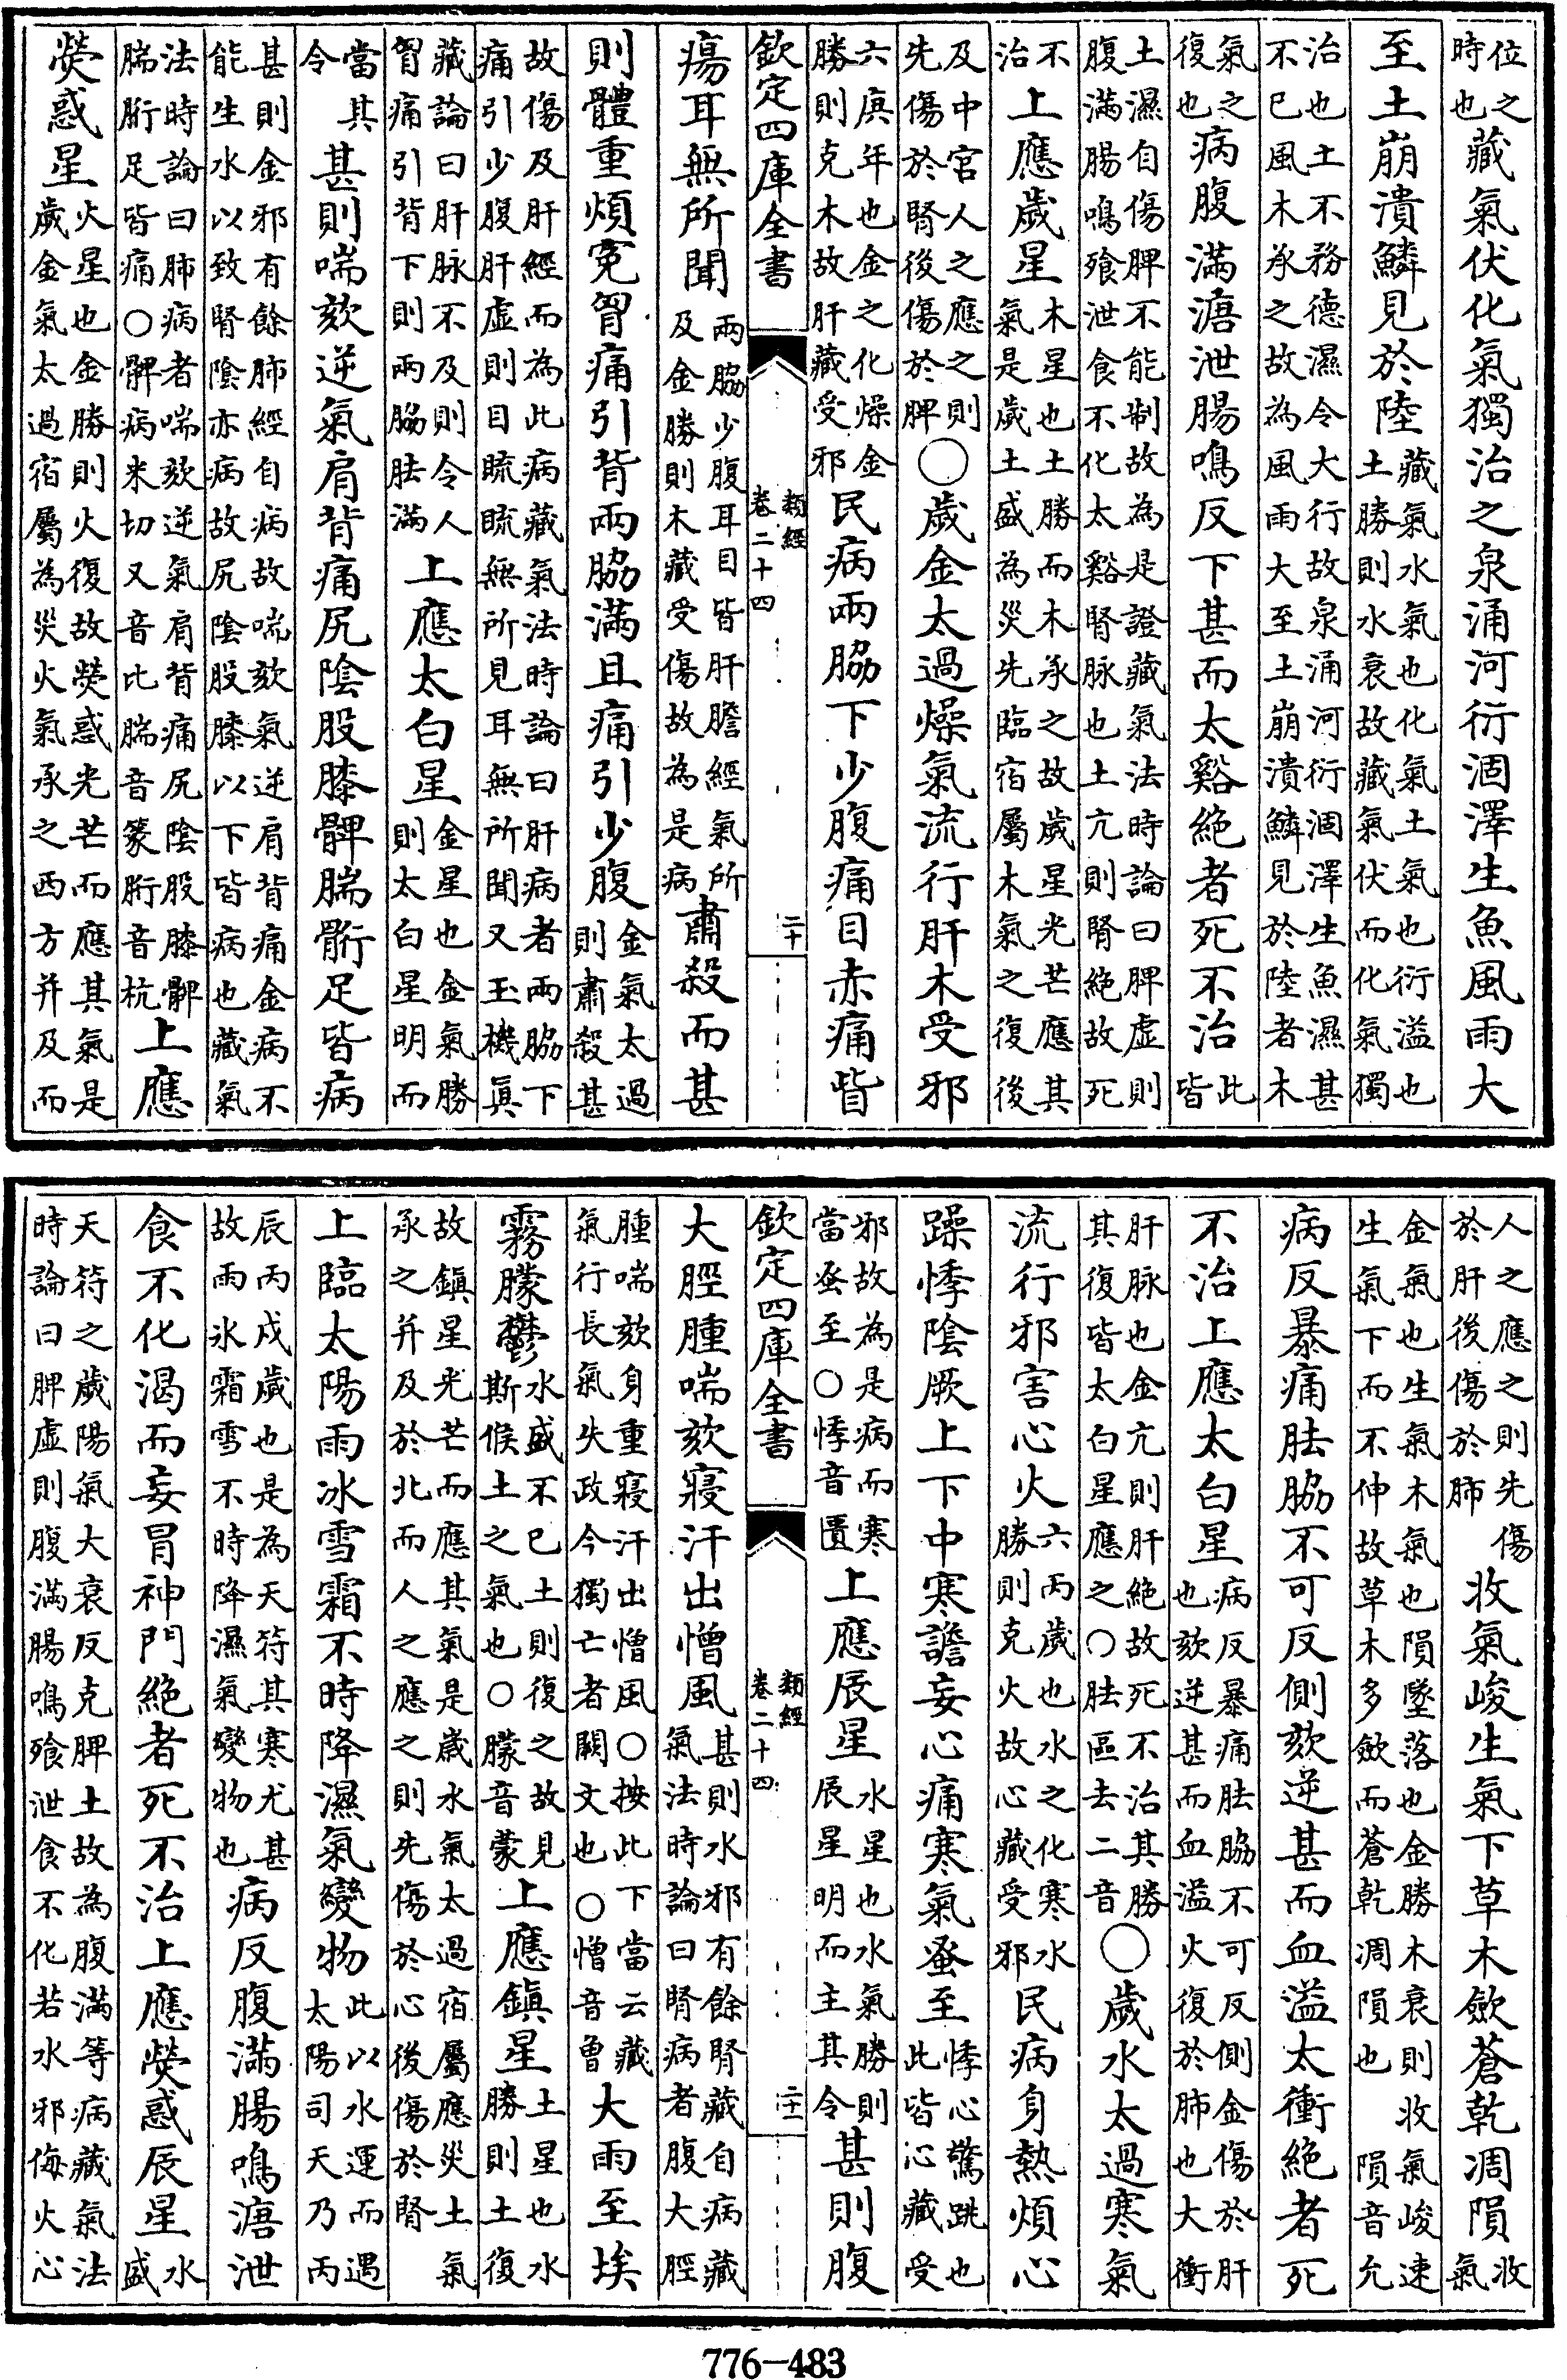 位之時也藏氣伏化氣獨治之泉涌河衍涸澤生魚風雨大
至土崩潰鱗見於陸藏氣水氣也化氣土氣也衍溢也土勝則水衰故藏氣伏而化氣獨
治也土不務德濕令大行故泉涌河衍涸澤生魚濕甚不已風木承之故為風雨大至土崩潰鱗見於陸者木
氣之復也病腹滿溏泄腸鳴反下甚而太谿絶者死不治此皆
土濕自傷脾不能制故為是證藏氣法時論曰脾虛則腹滿腸鳴飱泄食不化太谿腎脉也土亢則腎絶故死
不治上應歲星木星也土勝而木承之故歲星光芒應其氣是歲土盛為災先臨宿屬木氣之復後
及中宮人之應之則先傷於腎後傷於脾○歲金太過燥氣流行肝木受邪
六庚年也金之化燥金勝則克木故肝藏受邪民病兩脇下少腹痛目赤痛眥
欽定四庫全書 類經卷二十四 二十
瘍耳無所聞兩脇少腹耳目皆肝膽經氣所及金勝則木藏受傷故為是病肅殺而甚
則體重煩冤胷痛引背兩脇滿且痛引少腹金氣太過則肅殺甚
故傷及肝經而為此病藏氣法時論曰肝病者兩脇下痛引少腹肝虛則目䀮䀮無所見耳無所聞又玉機眞
藏論曰肝脉不及則令人胷痛引背下則兩脇胠滿上應太白星金星也金氣勝則太白星明而
當其令甚則喘欬逆氣肩背痛尻陰股膝髀腨䯒足皆病
甚則金邪有餘肺經自病故喘欬氣逆肩背痛金病不能生水以致腎陰亦病故尻陰股膝以下皆病也藏氣
法時論曰肺病者喘欬逆氣肩背痛尻陰股膝髀腨胻足皆痛○髀病米切又音比腨音篆胻音杭上應
熒惑星火星也金勝則火復故熒惑光芒而應其氣是歲金氣太過宿屬為災火氣承之西方并及而
人之應之則先傷於肝後傷於肺收氣峻生氣下草木歛蒼乾凋隕收氣
金氣也生氣木氣也隕墜落也金勝木衰則收氣峻速生氣下而不伸故草木多歛而蒼乾凋隕也隕音允
病反暴痛胠脇不可反側欬逆甚而血溢太衝絶者死
不治上應太白星病反暴痛胠脇不可反側金傷於肝也欬逆甚而血溢火復於肺也大衝
肝脉也金亢則肝絶故死不治其勝其復皆太白星應之○胠區去二音○歲水太過寒氣
流行邪害心火六丙歲也水之化寒水勝則克火故心藏受邪民病身熱煩心
躁悸陰厥上下中寒譫妄心痛寒氣蚤至悸心驚跳也此皆心藏受
邪故為是病而寒當蚤至○悸音匱上應辰星水星也水氣勝則辰星明而主其令甚則腹
欽定四庫全書 類經卷二十四 二十一
大脛腫喘欬寢汗出憎風甚則水邪有餘腎藏自病藏氣法時論曰腎病者腹大脛
腫喘欬身重寢汗出憎風○按此下當云藏氣行長氣失政今獨亡者闕文也○憎音曾大雨至埃
霧朦鬱水盛不已土則復之故見斯候土之氣也○朦音蒙上應鎮星土星也水勝則土復
故鎮星光芒而應其氣是歲水氣太過宿屬應災土氣承之并及於北而人之應之則先傷於心後傷於腎
上臨太陽雨冰雪霜不時降濕氣變物此以水運而遇太陽司天乃丙
辰丙戌歲也是為天符其寒尤甚故雨氷霜雪不時降濕氣變物也病反腹滿腸鳴溏泄
食不化渴而妄冒神門絶者死不治上應熒惑辰星水盛
天符之歲陽氣大衰反克脾土故為腹滿等病藏氣法時論曰脾虛則腹滿腸鳴飱泄食不化若水邪侮火心
776-483